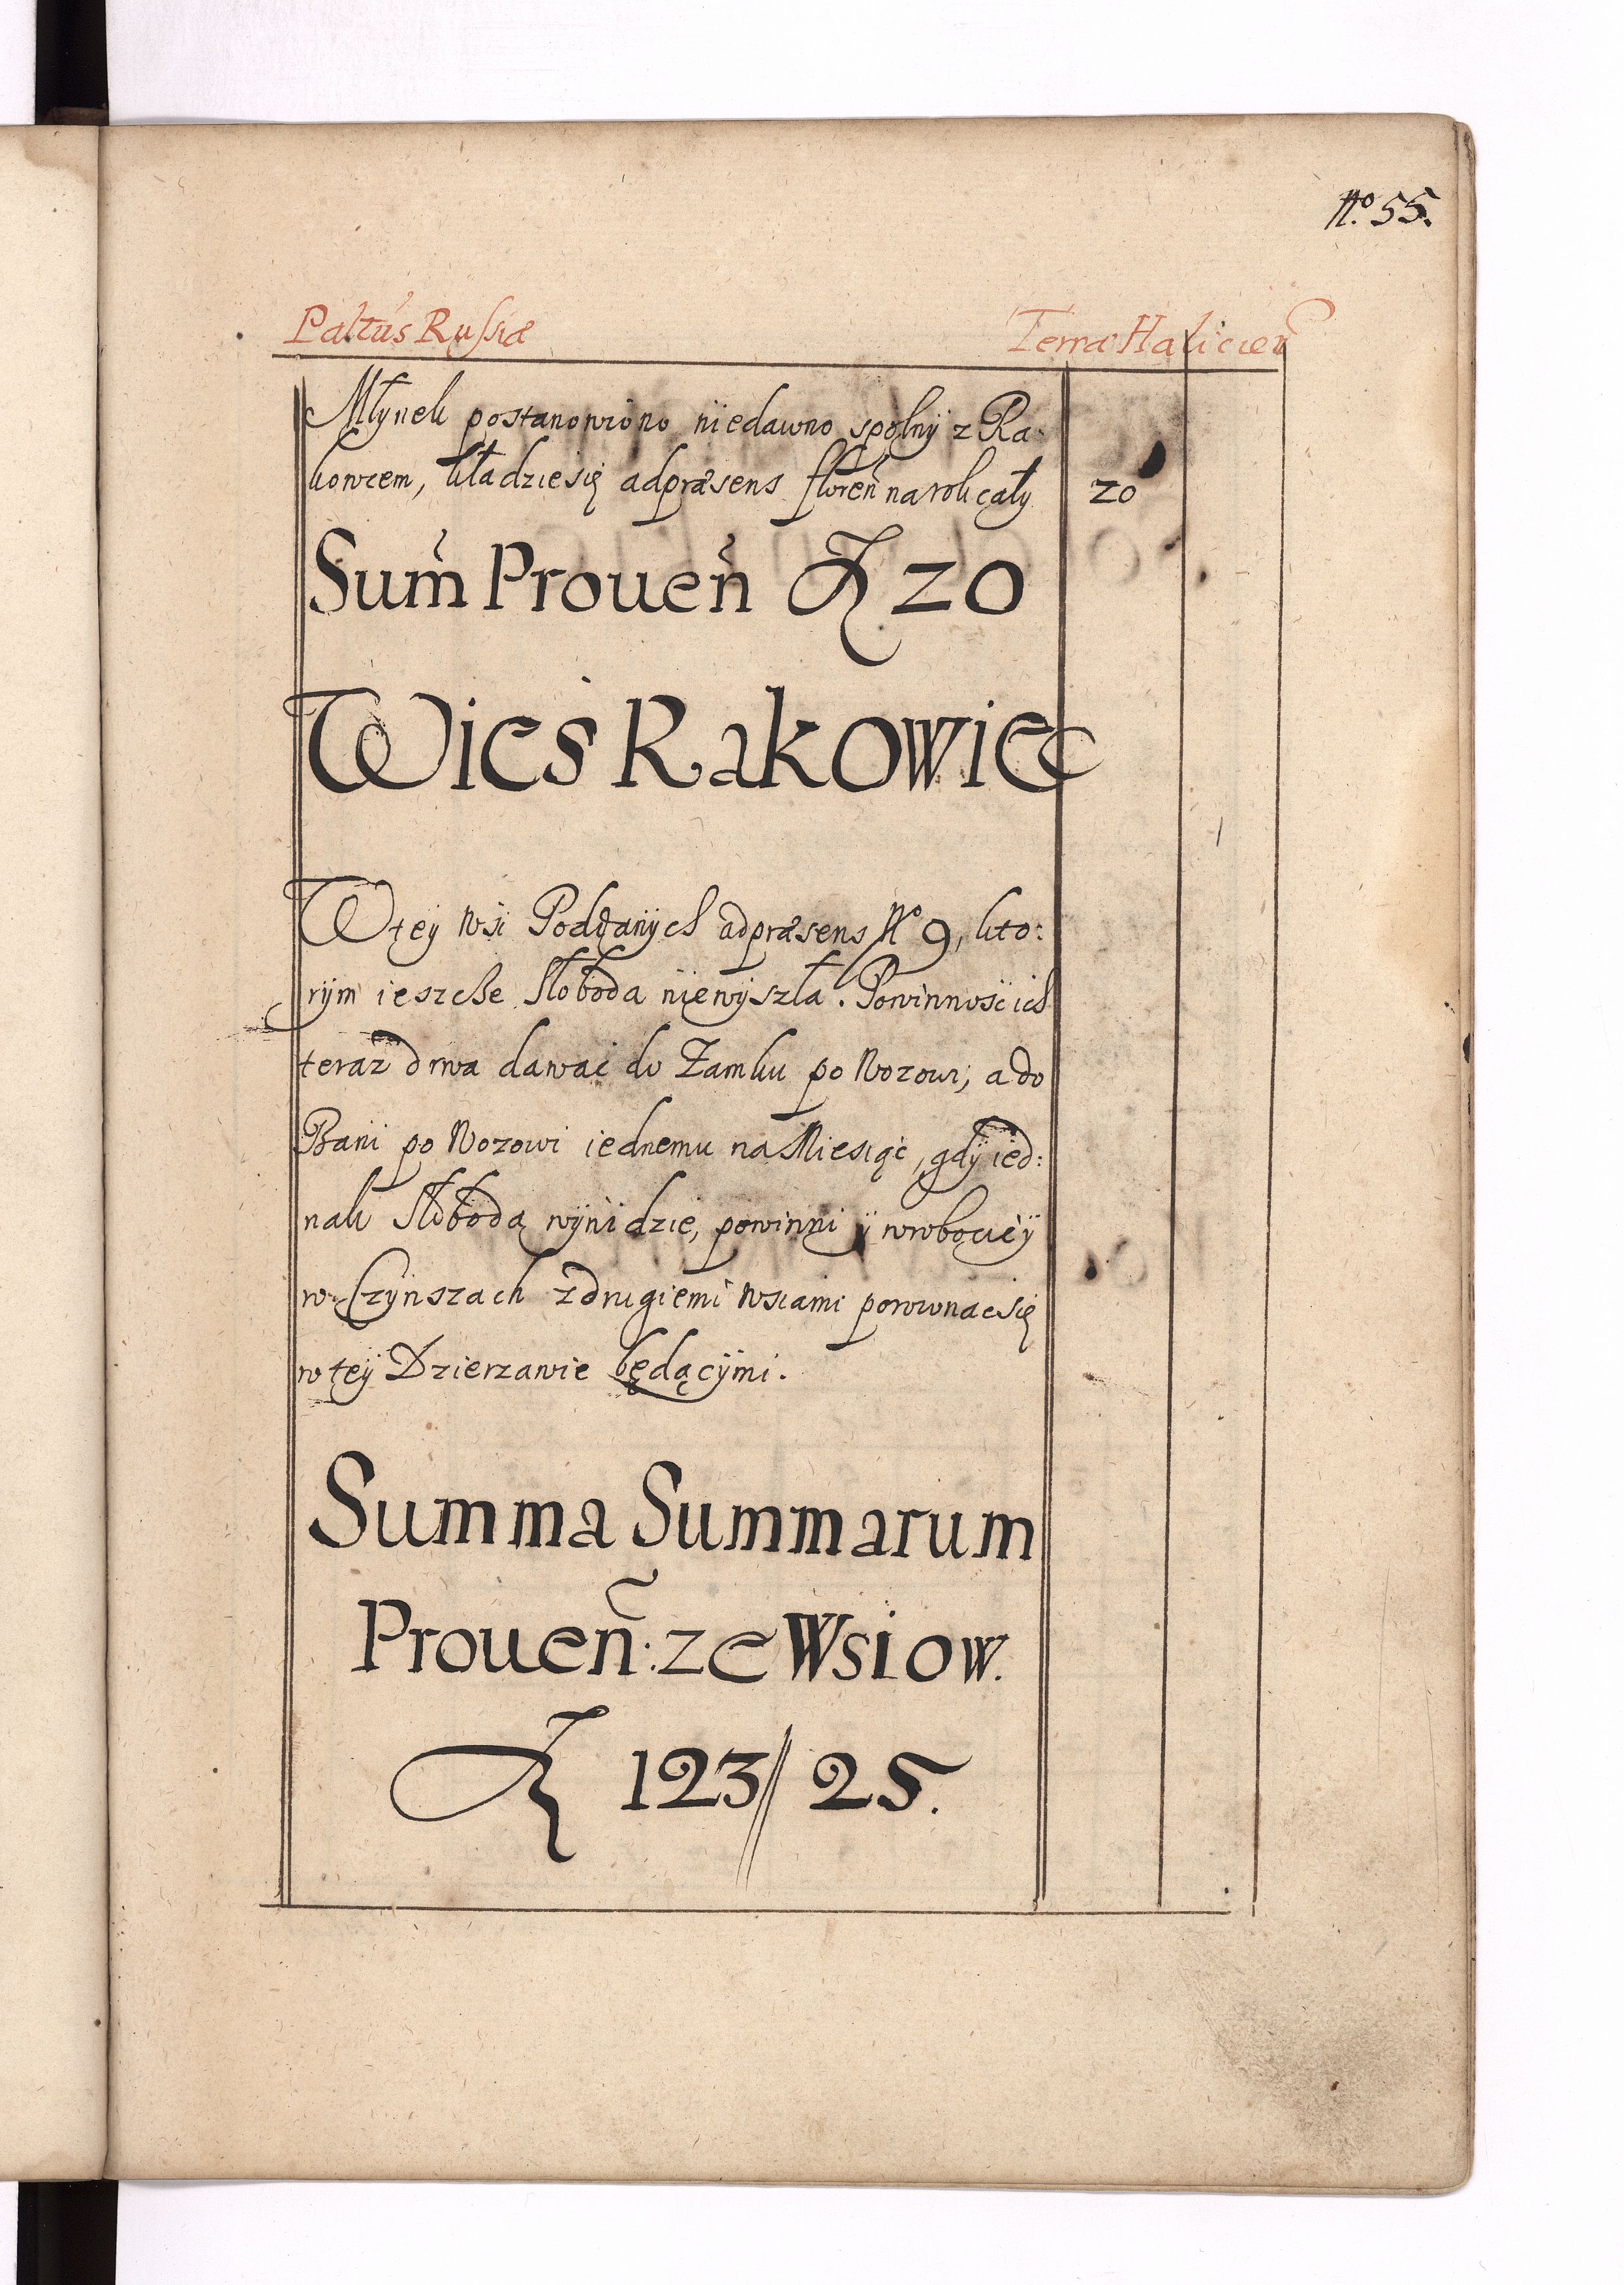 No. 55.
Paltus Russiæ Terræ Halicien
Młynek postanowiono niedawno spolny z Ra-
kowcem, kładzie się adpræsens floren na rok cały 20
Sum Prouen F 20
Wies Rakowiec
W tey Wsi Poddanych adpræsens No 9, kto:
rym ieszcze Słoboda niewyszła. Powinność ich
teraz drwa dawać do Zamku po Wozowi, a do
Bani po Wozowi iednemu na Miesiąc, gdy ied:
nak Słoboda wynidzie, powinni y w robocie y
w Czynszach z drugiemi Wsiami porownac się
w tey Dzierzawie będącymi.
Summa Summarum
Prouen: ze Wsiow.
F 123// 25.